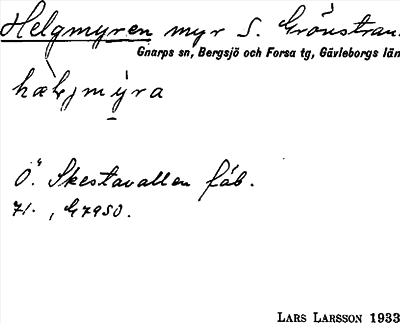 Helgmyren myr S. Grönstran
Gnarps sn, Bergsjö och Forsa tg, Gävleborgs län
Ö. Skestavallen fäb.
71. , G7950.
LARS LARSSON 1933